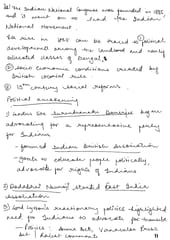 The Indian National Congress was founded in 1885
and it went on to lead the Indian
National movement.
Its rise in 1885 can be traced to political
development among the landlord and newly
educated classes of Bengal.
② Socio economic conditions created by
British colonial rule.
③ 19th century social reforms.
Political awakening
① Under Surendranath Banerjee began
advocating for a representative polity
for Indians
- formed Indian British Association
- goals to educate people politically,
advocate for rights of Indians
② Dadabhai Naoroji started East India
Association
③ Lord Lytton's reactionary policies highlighted
need for Indians to advocate for
- Policies: Arms Act, Vernacular Press
Act